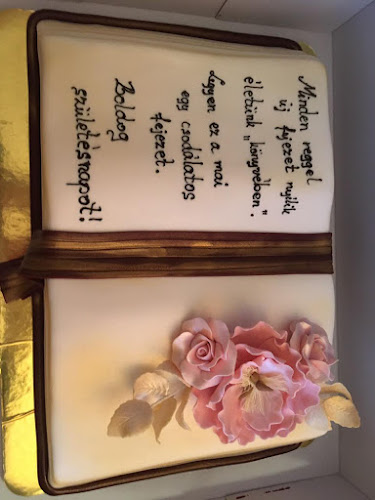 Minden reggel
új fejezet nyílik
életünk „könyvében".
Legyen ez a mai
egy csodálatos
fejezet.
Boldog
születésnapot!